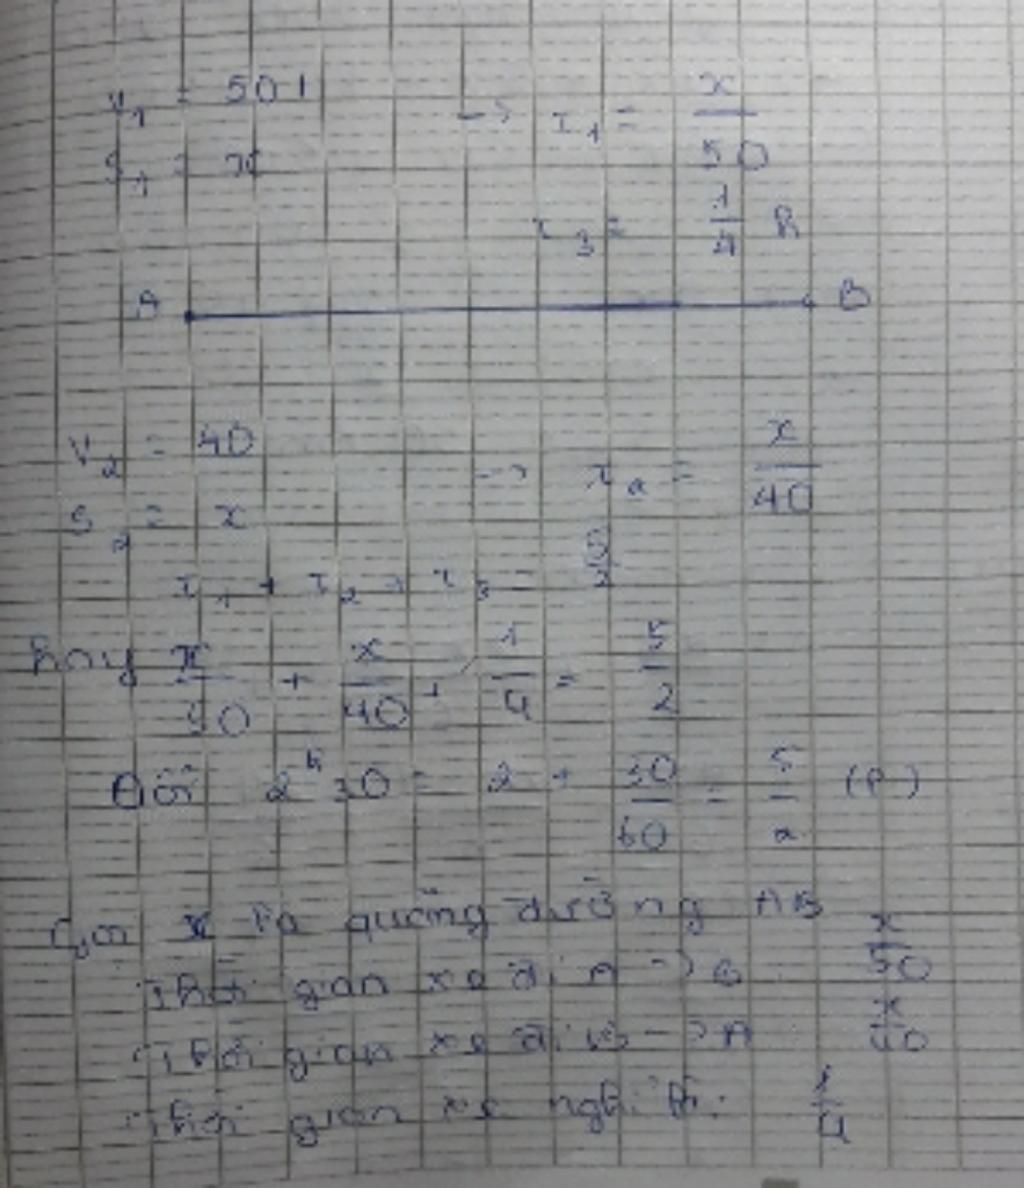 V₁ = 50
S₁ = x
→ t₁ = x/50
t₃ = 1/4 h
A B
V₂ = 40
S₂ = x
→ t₂ = x/40
t₁ + t₂ + t₃ = 5/2
hay x/50 + x/40 + 1/4 = 5/2
Đổi 2ʰ30 = 2 + 30/60 = 5/2
Gọi x là quãng đường AB
Thời gian xe đi A → B x/50
Thời gian xe đi B → A x/40
Thời gian xe nghỉ là: 1/4